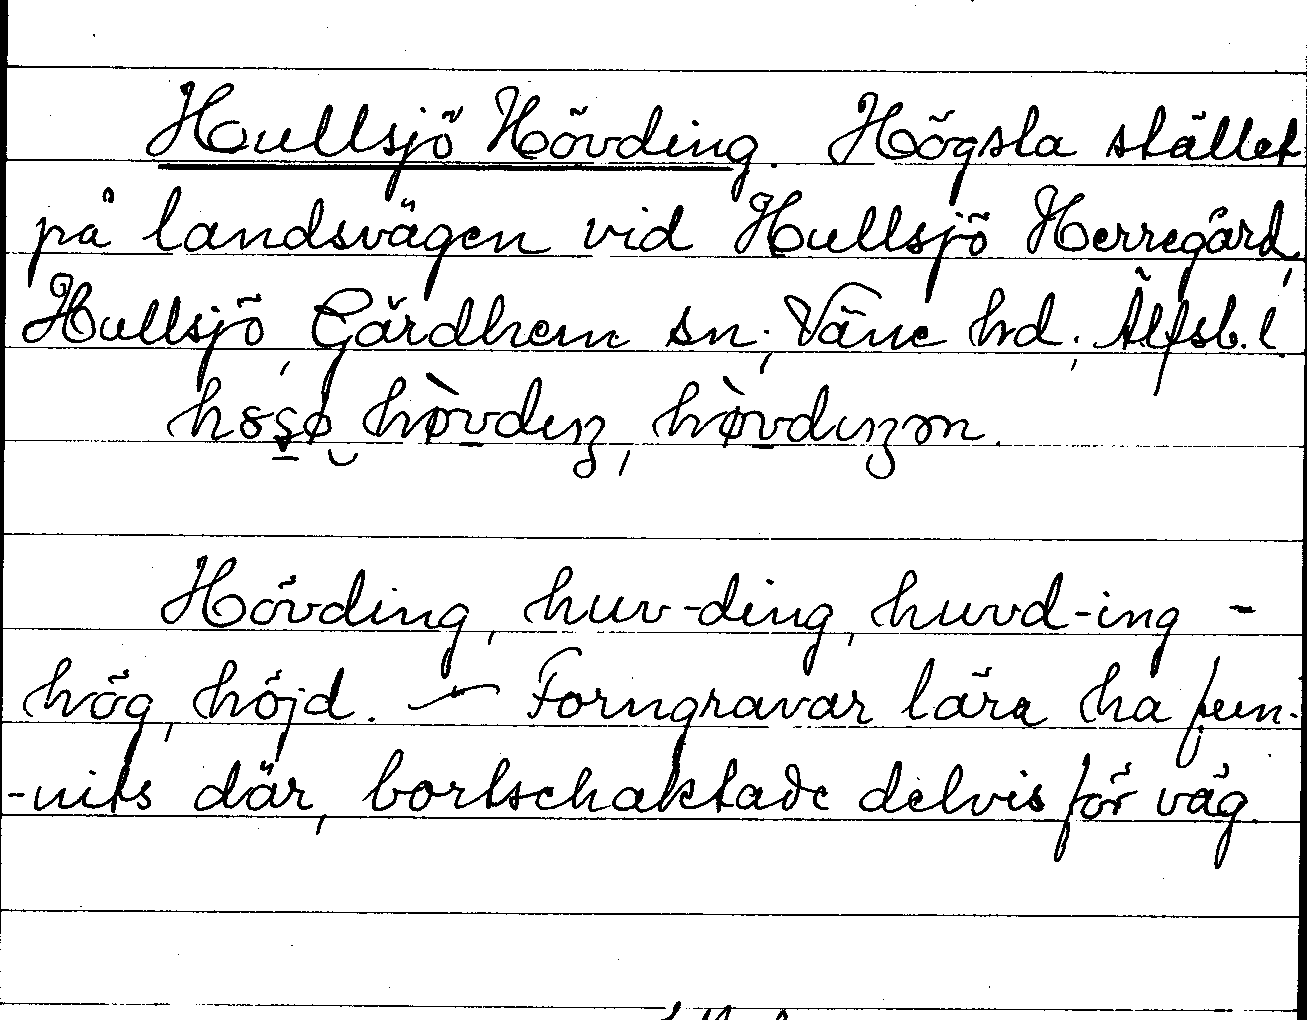 Hullsjö Hövding. Högsta stället
på landsvägen vid Hullsjö Herregård,
Hullsjö, Gärdhem sn; Väne hd; Älfsb. l.
Hövding, huv-ding, huvd-ing -
hög, höjd. — Forngravar lära ha fun-
-nits där, bortschaktade delvis för väg.